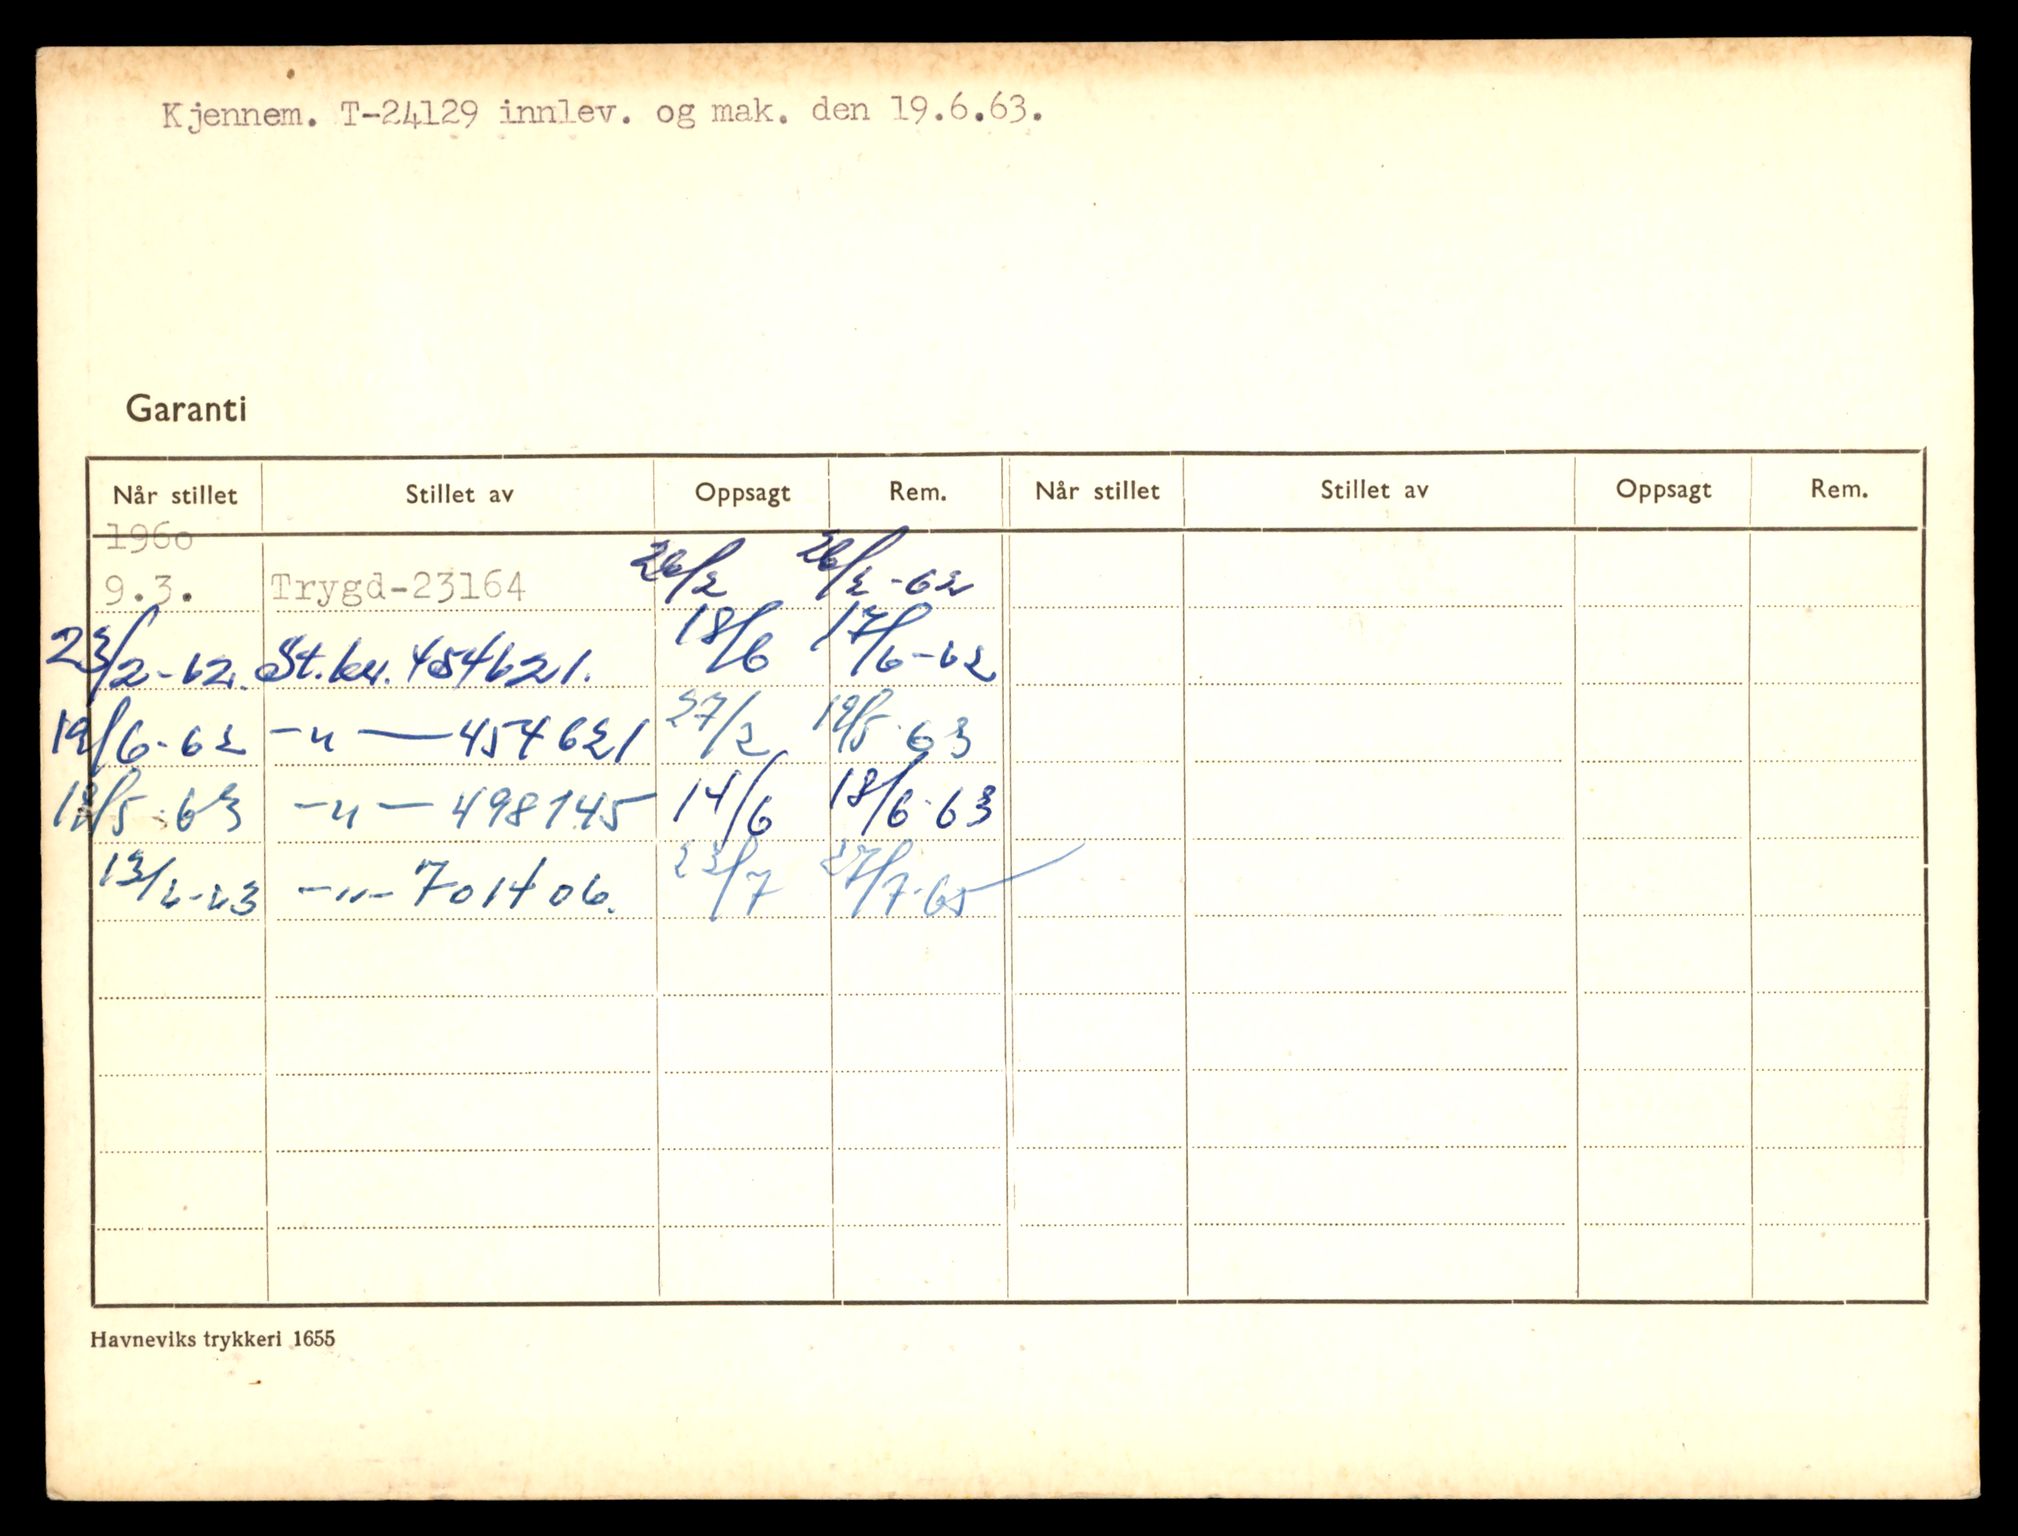 Kjennem. T-24129 innlev. og mak. den 19.6.63.
Garanti
Når stillet Stillet av Oppsagt Rem. Når stillet Stillet av Oppsagt Rem.
1960
9.3. Trygd-23164 26/2 26/2-62
23/2-62. St.br. 454621. 18/6 17/6-62
19/6-62 -"- 454621 27/2 19/5-63
/5-63 -"- 498145 14/6 18/6-63
13/ -"- 701406. 23/7 27/7-65
Havneviks trykkeri 1655